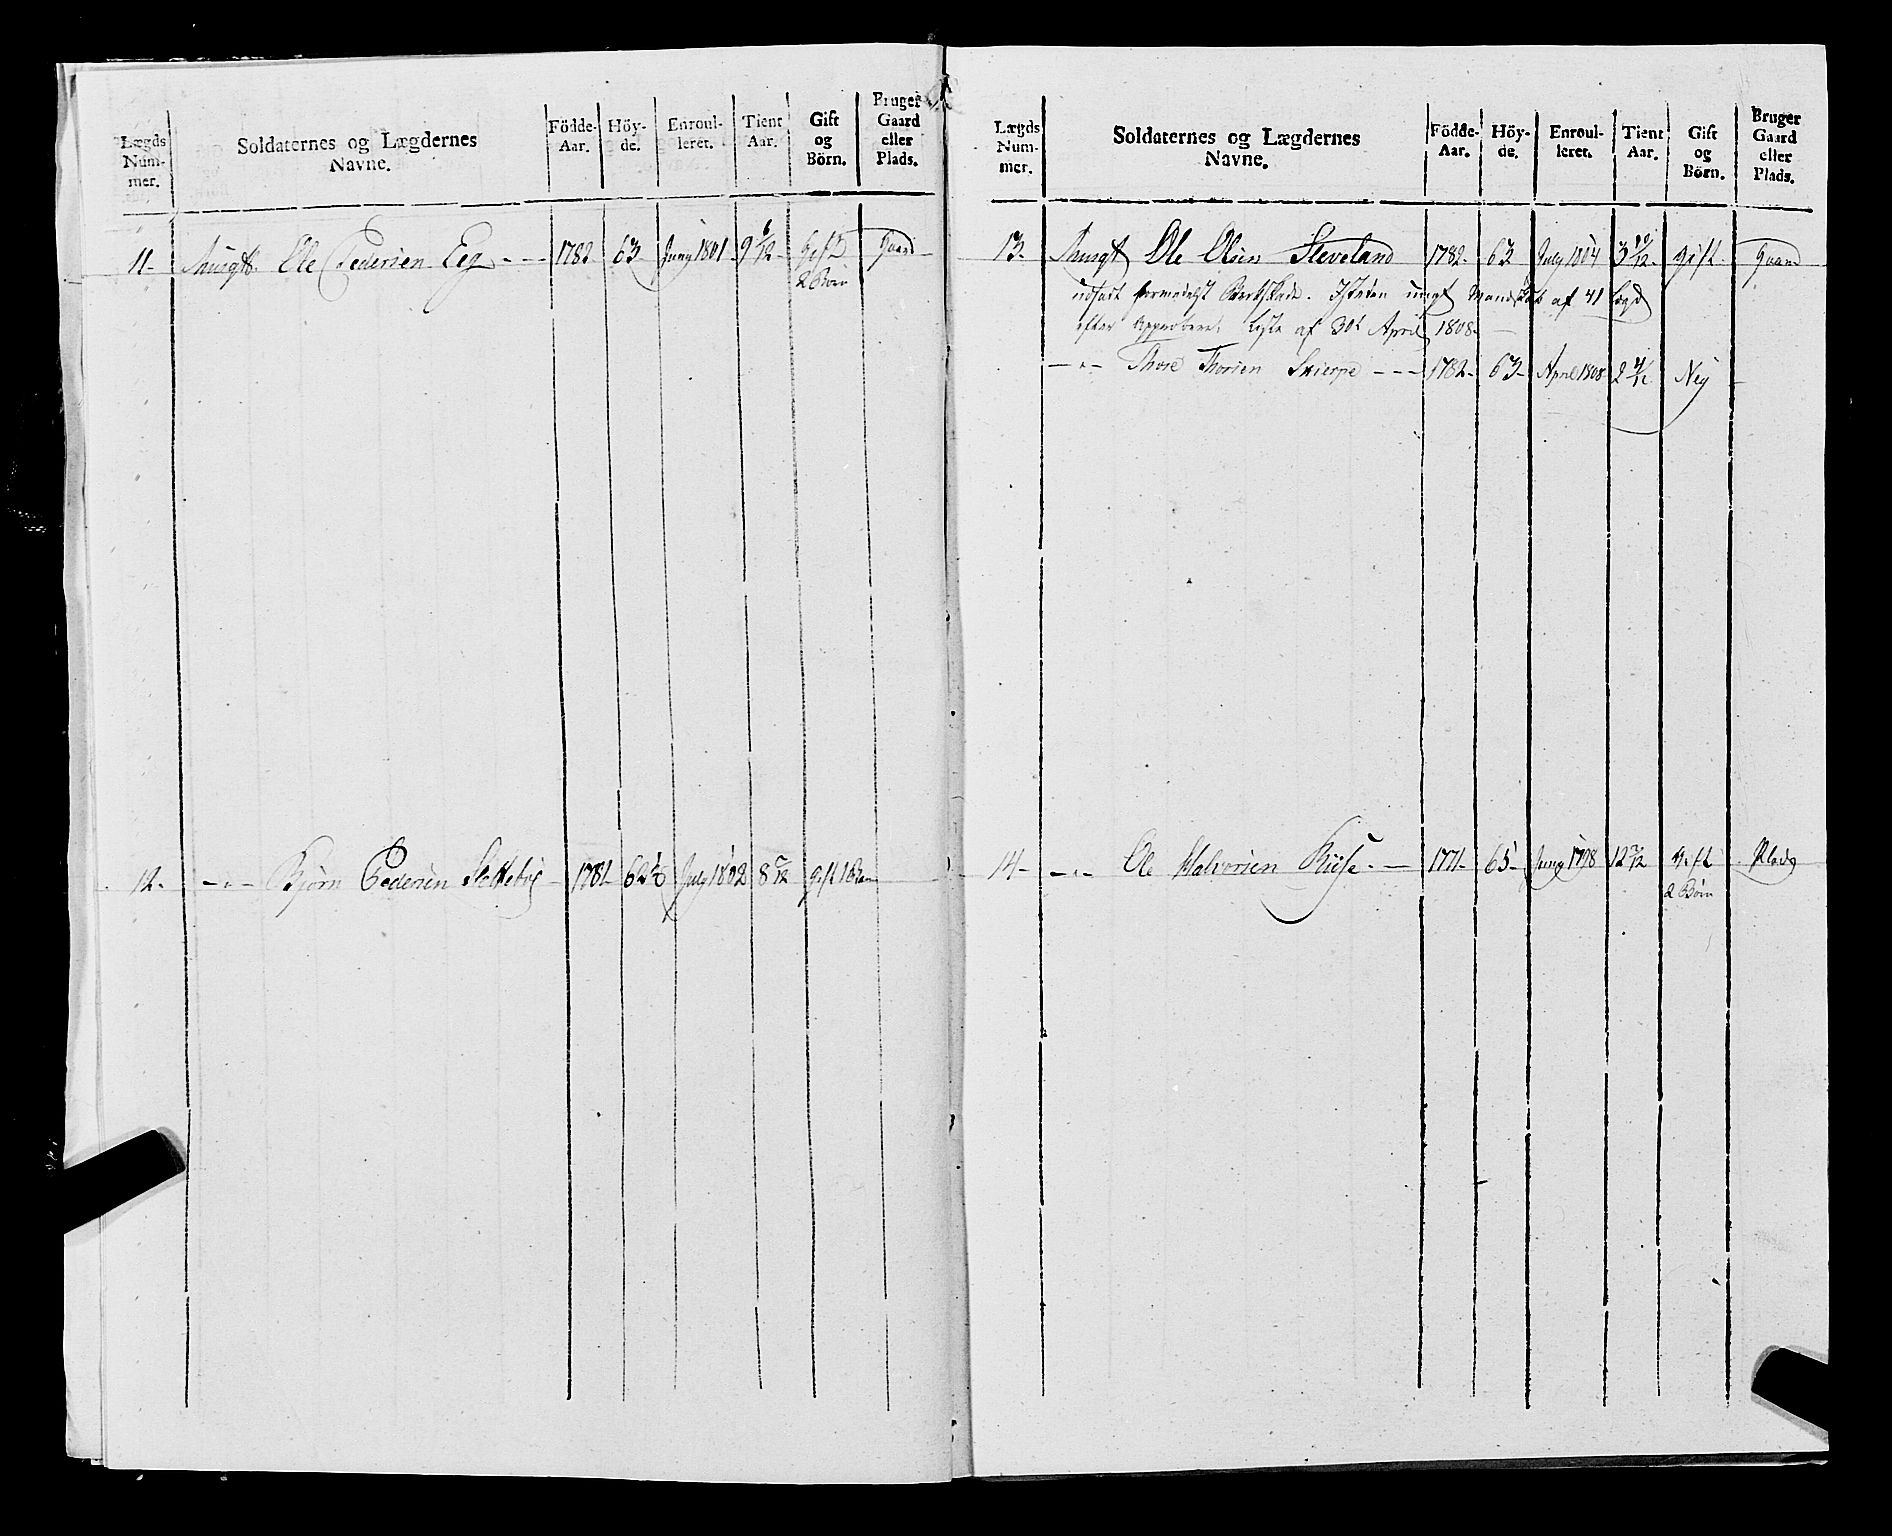 Lægds Num- mer. Soldaternes og Lægdernes Navne. Födde- Aar. Höy- de. Enroul- leret. Tient Aar. Gift og Börn. Bruger Gaard eller Plads.
11- Musqtt. Ole Pedersen Eeg - - - 1782- 63 Juny 1801 9 6/12 Gift Gaard
2 Börn
12- -"- Bjørn Pedersen 1781 62 1/2 July 1802 8 5/12 gift 1 Barn
Lægds Num- mer. Soldaternes og Lægdernes Navne. Födde- Aar. Höy- de. Enroul- leret. Tient Aar. Gift og Börn. Bruger Gaard eller Plads.
13- Musqt Ole Olsen Steveland 1782- 63 July 1804 3 10/12 gift Gaard
udsadt formedelst Isteden ungt Mandskab af 41 Lægd
efter Approberet Liste af 30t April 1808-
-"- Thore Thorsen Skierpe - - - 1782- 63- April 1808 2 Ney
14- -"- Ole Halvorsen 1771- 65- Juny 1798 12 5/12 gift Plads
2 Börn